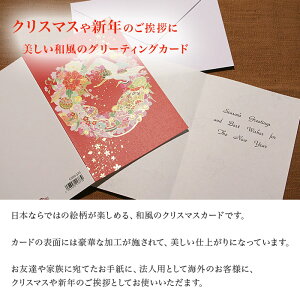 クリスマスや新年のご挨拶に
美しい和風のグリーティングカード
Season's Greetings
and Best Wishes for
The New Year
日本ならではの絵柄が楽しめる、和風のクリスマスカードです。
カードの表面には豪華な加工が施されて、美しい仕上がりになっています。
お友達や家族に宛てたお手紙に、法人用として海外のお客様に、
クリスマスや新年のご挨拶としてお使いいただけます。